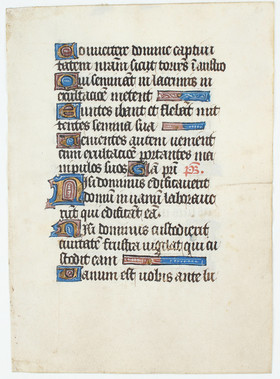 Convertere domine captivi
tatem nram sicut torres i austro
Qui seminant in lacrimis in
exultacōe metent
Euntes ibant et flebant mit
tentes semina sua
Venientes autem venient
cum exultacōe portantes ma
nipulos suos Gla pri ps
Nisi dominus edificaverit
domū in vanū laborave
rūt qui edificāt eā
Nisi dominus custodierit
civitatē frustra vigilat qui cu
stodit eam
Vanum est vobis ante lu